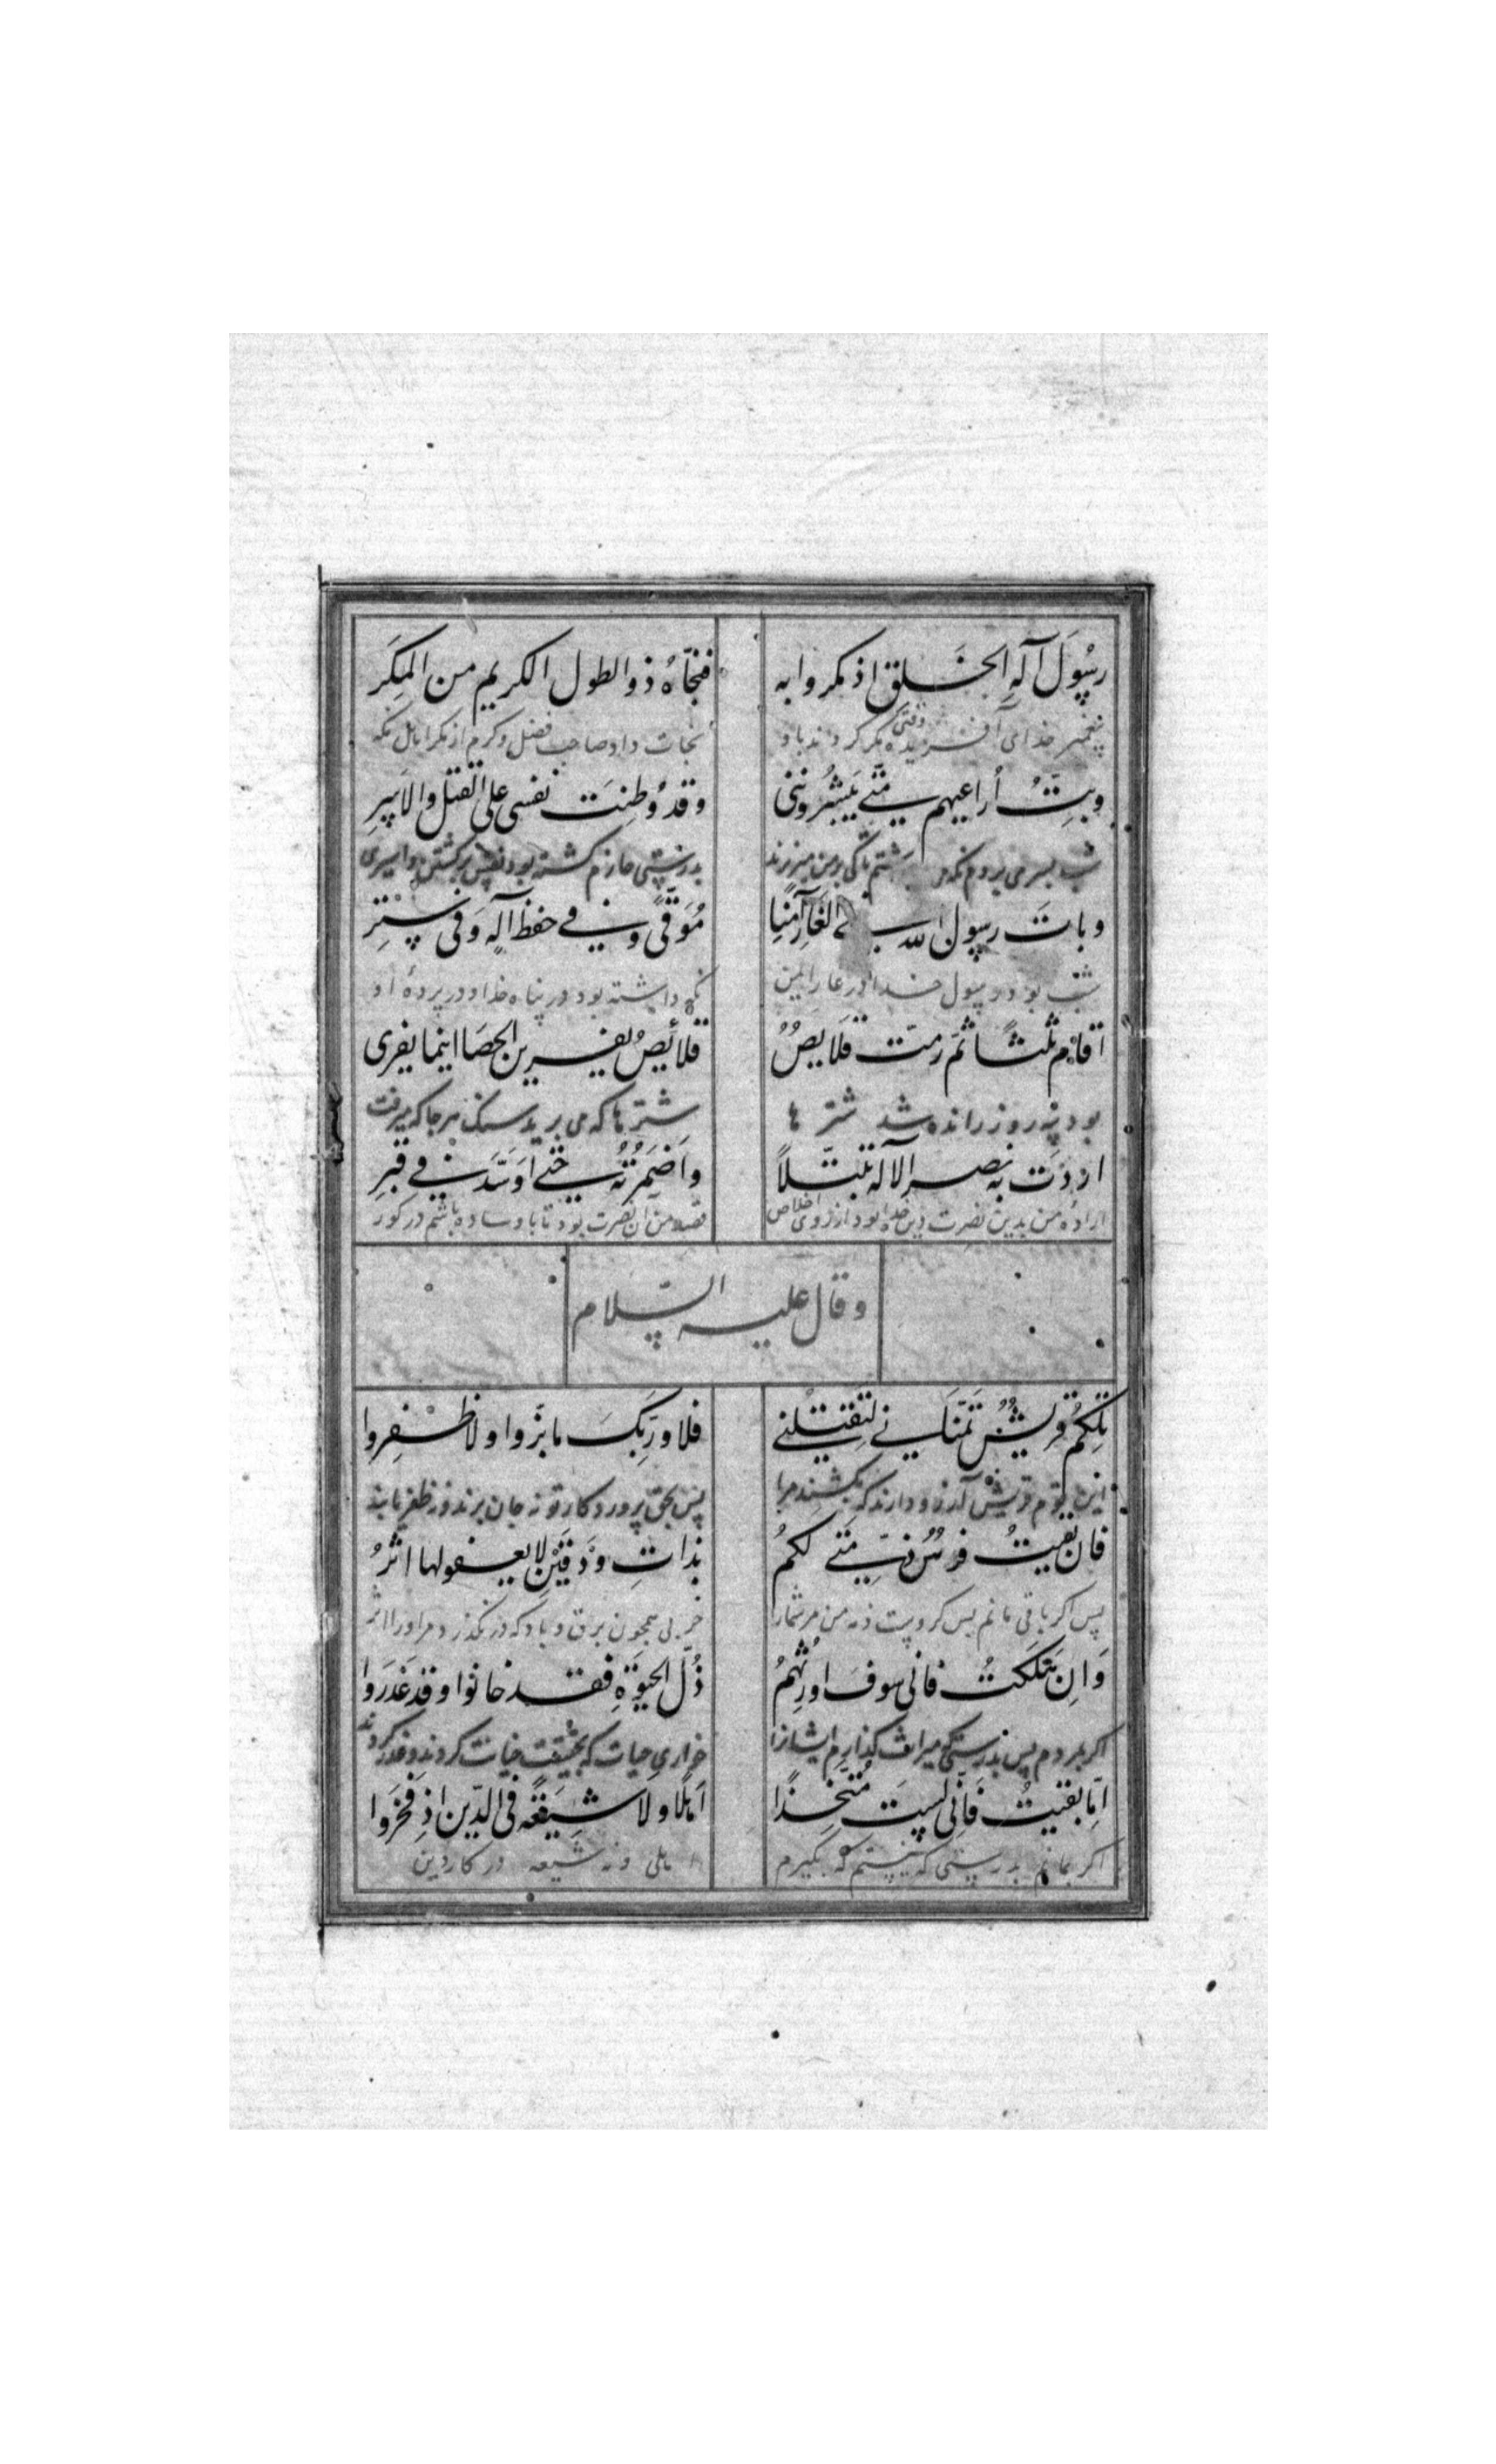 رسُولَ آلهِ الخَلق اذ مكروا به فنجّاهُ ذو الطول الكريم من المكَر
پیغمبر خدای آفریده وقتی مکر کردند باو نجات داد صاحب فضل و کرم از مکر
وبِتُّ اُراعيهم متى يَنشُرونني وقد وُطنَت نفسى على القتل والاسِر
شب بسر می بردم تاکی بدرستی جازم کشته بود نفس بر کشتن و اسیری
وباتَ رسول الله في الغارِ آمنًا مُوَقًّى وفي حفظ آله وفى سِتِر
شب بود رسول خدا در غار ایمن نکه داشته بود در پناه خدا و در پردهٔ او
اقام ثلثًا ثمّ زمّت قلايصٌ قلائصُ يفرين الحصا اينما يفرى
بود سه روز رانده شد شتر ها شتر ها که می برید سنک هر جا که میرفت
اردت به نصر الاله تبتّلاً واَضمَرتُهُ حتى اوسَّدَ في قبرِ
ارادهٔ من بدین نصرت دین خدا بود از روی اخلاص قصد من آن نصرت بود تا باوساده باشم در کور
وقال عليه السّلام
تلكُم قريشٌ تمَنّاني لتقتلني فلا وربِّكَ ما بزّوا ولا ظفروا
این قوم قریش آرزو دارند که بکشند مرا پس بحق پروردکار تو نه جان برند و نه ظفر یابند
فان بقيتُ فرهنٌ ذمّتى لكمُ بذاتِ ودقين لا يعفو لها اثرُ
پس اکر باقی مانم پس کروست ذمه من مر شمارا همچون برق و باد که در نکذرد مر اورا اثر
وَاِن هَلَكتُ فانى سوفَ اورثهمُ ذُلّ الحيوةِ فقد خانوا وقد غدَروا
اکر بمردم پس بدرستی که میراث کذارم ایشانرا خواری حیات که بحقیقت خیانت کردند و غدر کردند
امّا بقيتُ فانى لستُ متّخِذًا اَهلًا ولا شيعة فى الدّين اذ فجَروا
اکر بمانم بدرستی که نیستم که بکیرم اهلی و نه شیعه در کار دین